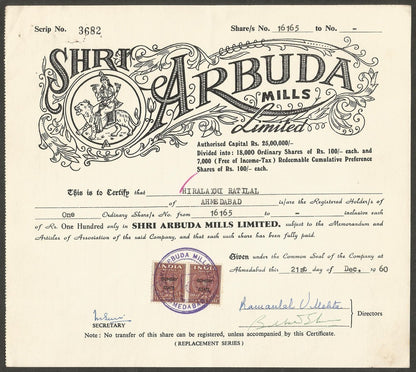 Scrip No. 3682
Share/s No. 16165 to No. -
SHRI ARBUDA
MILLS
Limited
Authorised Capital Rs. 25,00,000/-
Divided into: 18,000 Ordinary Shares of Rs. 100/- each. and
7,000 (Free of Income-Tax) Redeemable Cumulative Preference
Shares of Rs. 100/- each.
This is to Certify that HIRALAXMI RATILAL
of AHMEDABAD is/are the Registered Holder/s of
One Ordinary Share/s No. from 16165 to - inclusive each
of Rs. One Hundred only in SHRI ARBUDA MILLS LIMITED, subject to the Memorandum and
Articles of Association of the said Company, and that each such share has been fully paid.
Given under the Common Seal of the Company at
Ahmedabad this 21st day of Dec. 1960
ARBUDA MILLS
INDIA
INDIA
AHMEDABAD
Ramanlal
Directors
SECRETARY
Note: No transfer of this share can be registered, unless accompanied by this Certificate.
(REPLACEMENT SERIES)